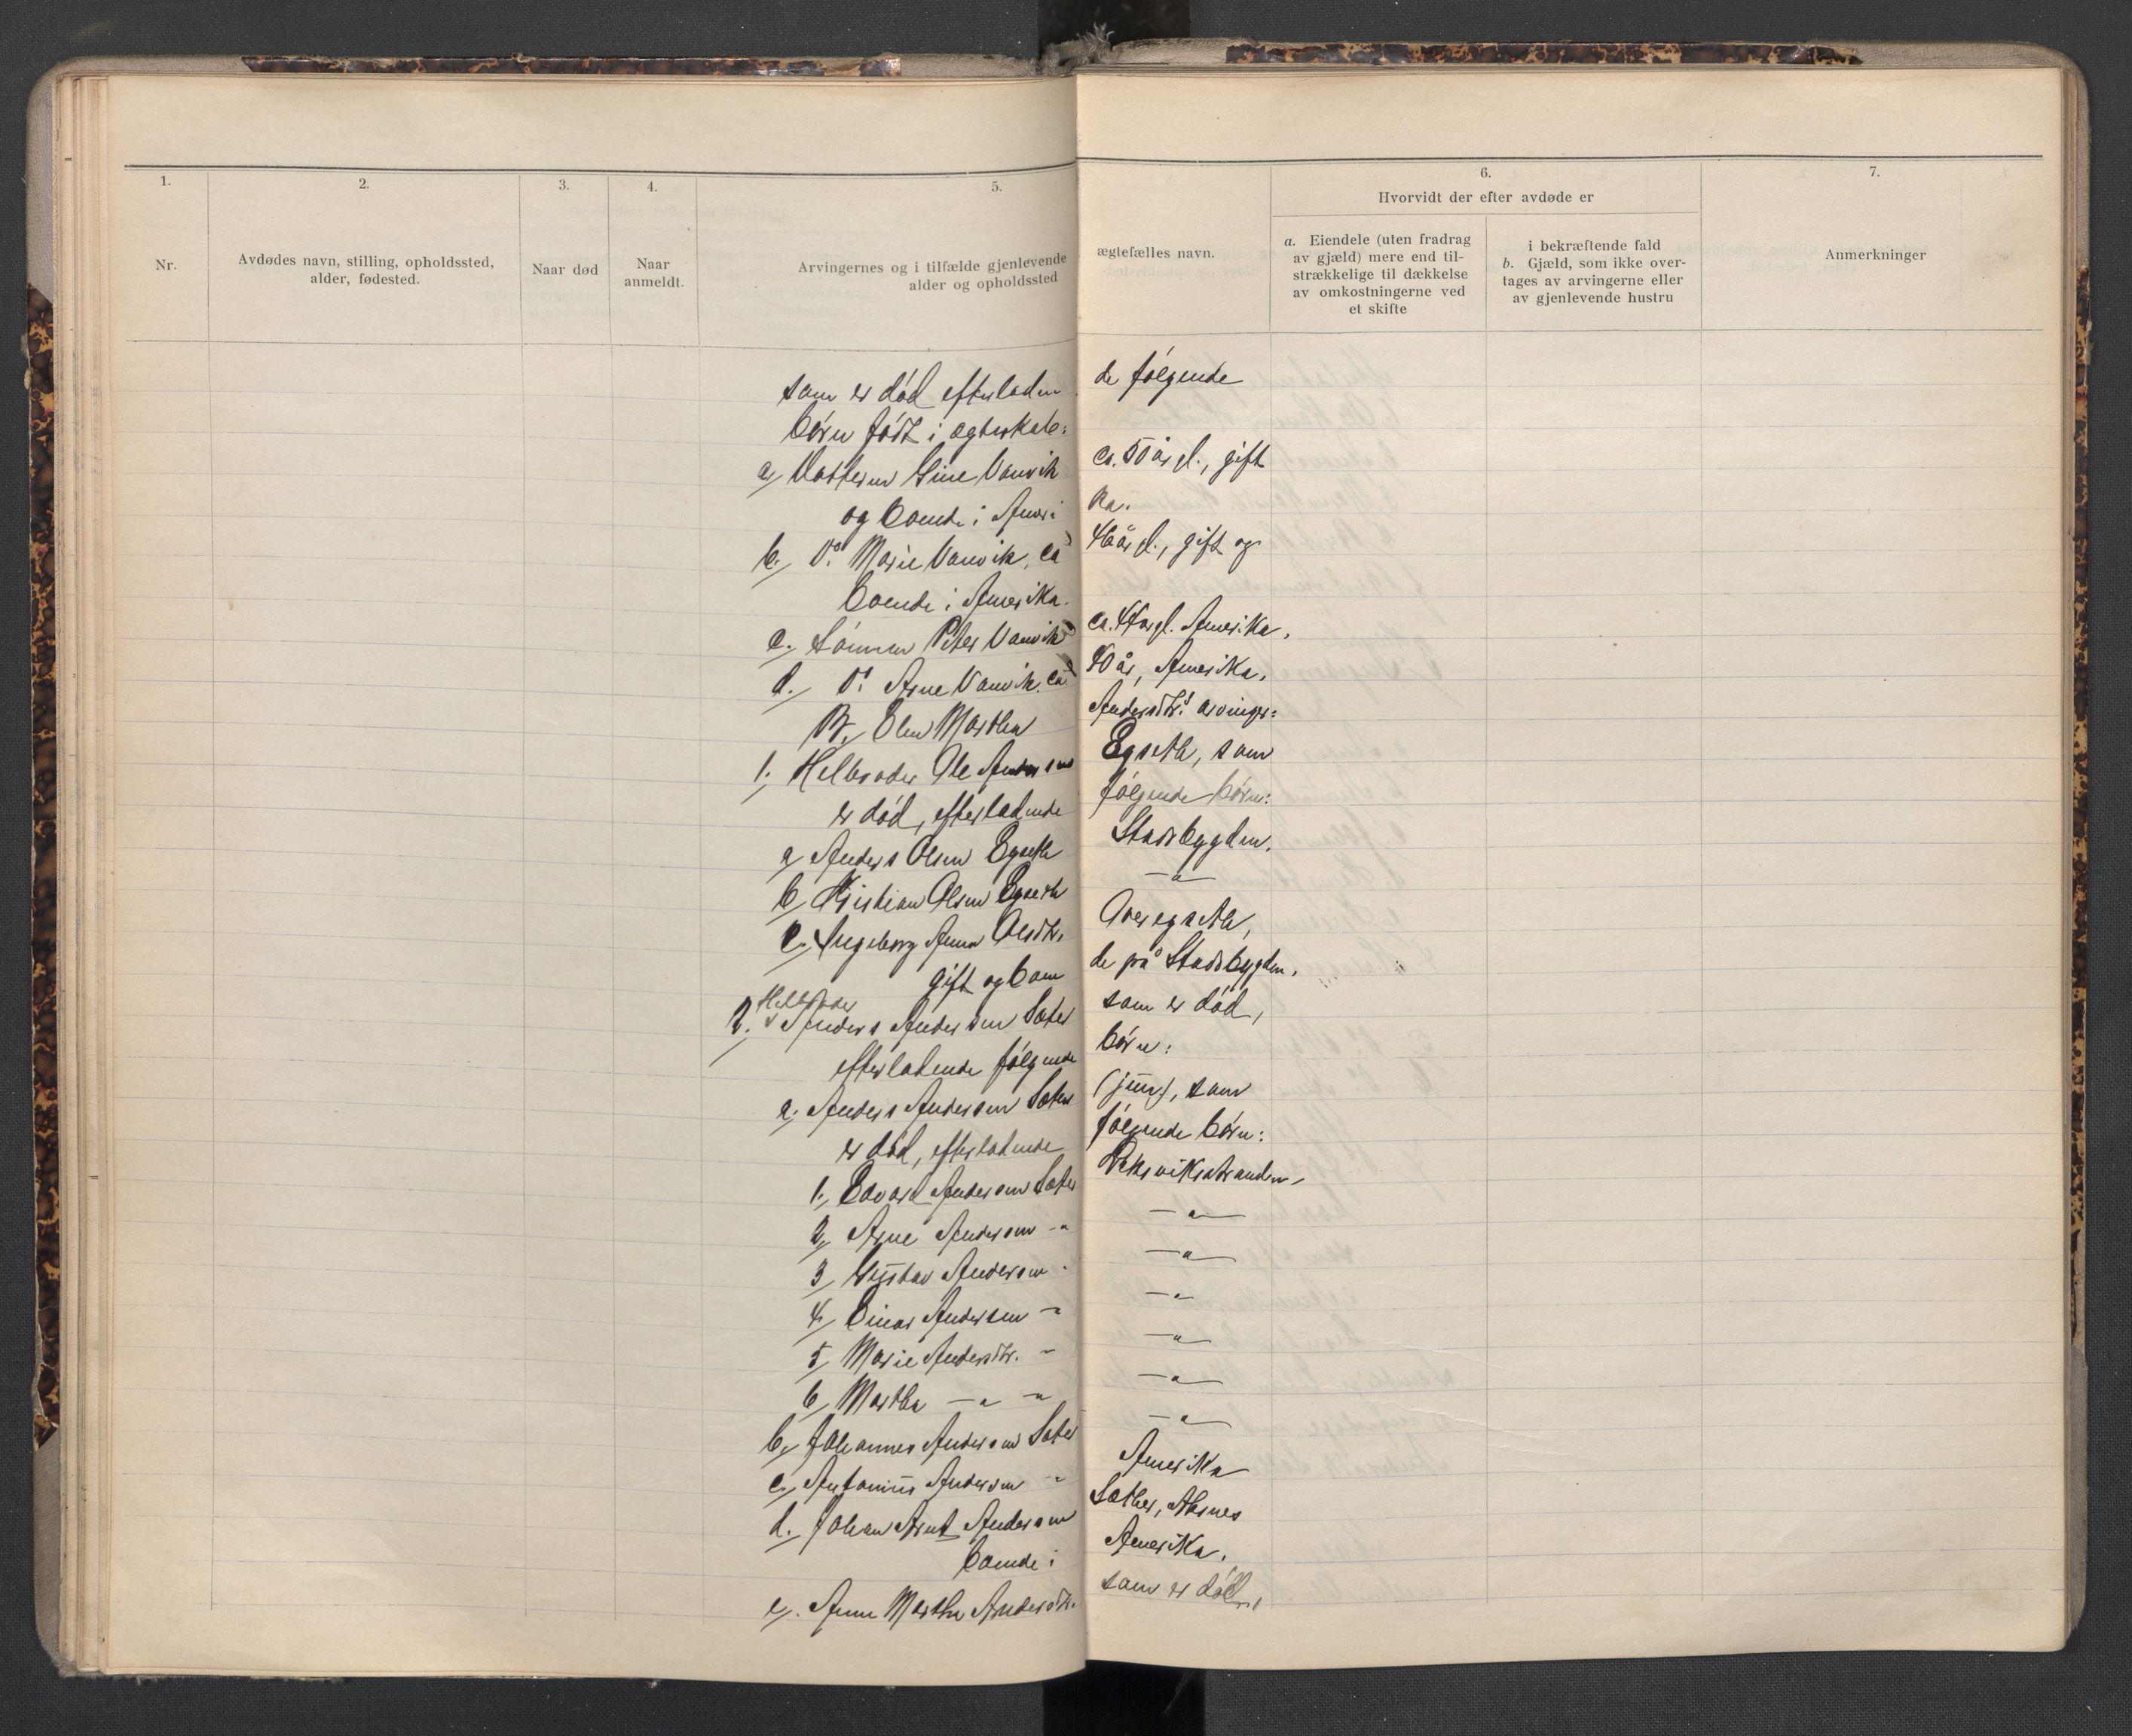 1.
2.
3.
4.
5.
6.
7.
Nr.
Avdødes navn, stilling, opholdssted,
alder, fødested.
Naar død
Naar
anmeldt.
Arvingernes og i tilfælde gjenlevende ægtefælles navn.
alder og opholdssted
Hvorvidt der efter avdøde er
a. Eiendele (uten fradrag
av gjæld) mere end til-
strækkelige til dækkelse
av omkostningerne ved
et skifte
i bekræftende fald
b. Gjæld, som ikke over-
tages av arvingerne eller
av gjenlevende hustru
Anmerkninger
som er död efterladen de følgende
börn födt i ægteskab:
a, Datteren Gine Vanvik ca. 50 år gl., gift
og boende i Ameri ka.
b., Do Marie Vanvik, ca 46 år gl., gift og
boende i Amerika.
c., Sönnen Peter Vanvik ca. 44 år gl. Amerika,
d., Do Arne Vanvik, ca 40 år, Amerika,
B, Elen Martha Andersdtr.s arvinger:
1., Helbroder Ole Andersen Egseth, som
er död, efterladende følgende börn:
a, Anders Olsen Egseth Stadsbygden.
b, Kristian Olsen Egseth —"—
c., Ingeborg Anna Olsdtr. Overegseth,
gift og boen de på Stadsbygden.
2., Helbroder Anders Andersen Sæter som er död,
efterladende følgende börn:
a., Anders Andersen Sæter (jun), som
er död, efterladende følgende börn:
1., Edvard Andersen Sæter Leksvikstranden,
2, Arne Andersen —" —"—
3, Gustav Andersen " —"—
4, Einar Andersen —" —"—
5, Marie Andersdtr. —" —"—
6, Martha —"— —" —"—
b, Johannes Andersen Sæter —"—
c, Antonius Andersen —" Amerika
d., Johan Arnt Andersen Sæther,
boende i Amerika.
e, Anne Martha Andersdtr. som er död,